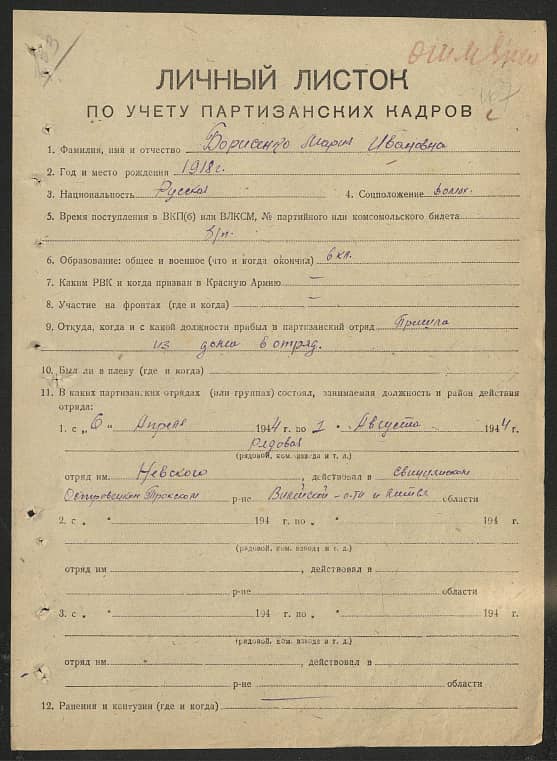 ЛИЧНЫЙ ЛИСТОК
ПО УЧЕТУ ПАРТИЗАНСКИХ КАДРОВ
1. Фамилия, имя и отчество Борисенко Мария Ивановна
2. Год и место рождения 1918 г.
3. Национальность Русская 4. Соцположение
5. Время поступления в ВКП(б) или ВЛКСМ, № партийного или комсомольского билета
б/п.
6. Образование: общее и военное (что и когда окончил) 6 кл.
7. Каким РВК и когда призван в Красную Армию —
8. Участие на фронтах (где и когда) —
9. Откуда, когда и с какой должности прибыл в партизанский отряд Пришла
из дома в отряд.
10. Был ли в плену (где и когда)
11. В каких партизанских отрядах (или группах) состоял, занимаемая должность и район действия
отряда:
1. с „6" Апреля 1944 г. по 1 " Августа 1944 г.
Рядовая
(рядовой, ком. взвода и т. д.)
отряд им. Невского, действовал в
Островецком Трокском р-не Вилейской о-ти и Литвы области
2. с „ " 194 г. по „ " 194 г.
(рядовой, ком. взвода и т. д.)
отряд им , действовал в
р-не области
3. с „ " 194 г. по „ " 194 г.
(рядовой, ком. взвода и т. д.)
отряд им. , действовал в
р-не области
12. Ранения и контузии (где и когда) —